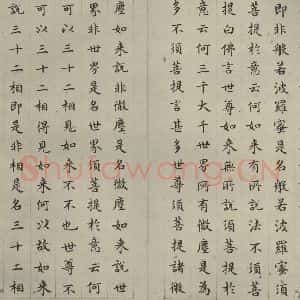 即非般若波羅蜜是名般若波羅蜜須
菩提於意云何如來有所說法不須菩
提白佛言世尊如來無所說須菩提於
意云何三千大千世界所有微塵是為
多不須菩提言甚多世尊須菩提諸微
塵如來說非微塵是名微塵如來說世
界非世界是名世界須菩提於意云何
可以三十二相見如來不不也世尊不
可以三十二相得見如來何以故如來
說三十二相即是非相是名三十二相
Shufawang.CN